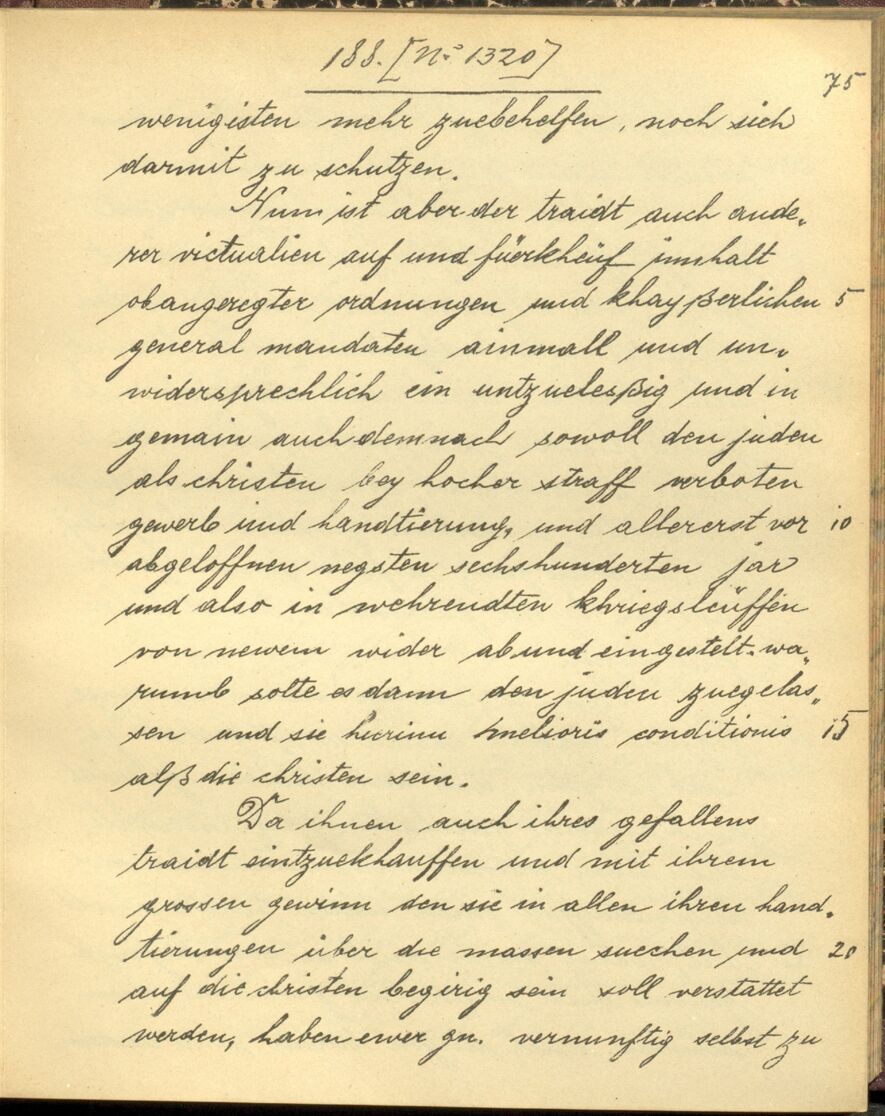 188. [No 1320]
75
wenigisten mehr zuebehelfen, noch sich
darmit zu schutzen.
Num ist aber der traidt auch ande„
rer victualien auf und füerkheuf innhalt
obangeregter ordnungen und khayßerlichen 5
general mandaten ainmall und un„
widersprechlich ein untzueleßig und in
gemain auch demnach sowoll den juden
als christen bey hocher straff verboten
gewerb und handtierung, und allererst vor 10
abgeloffnen negsten sechshunderten jar
und also in wehrendten khriegsleüffen
von newem wider ab und eingestelt. wa„
rumb solte es dann den juden zuegelas„
sen und sie hierinn melioris conditionis 15
alß die christen sein.
Da ihnen auch ihres gefallens
traidt eintzuekhauffen und mit ihrem
grossen gewinn den sie in allen ihren hand„
tierungen über die massen suechen und 20
auf die christen begirig sein soll verstattet
werden, haben ewer gn. vernunftig selbst zu